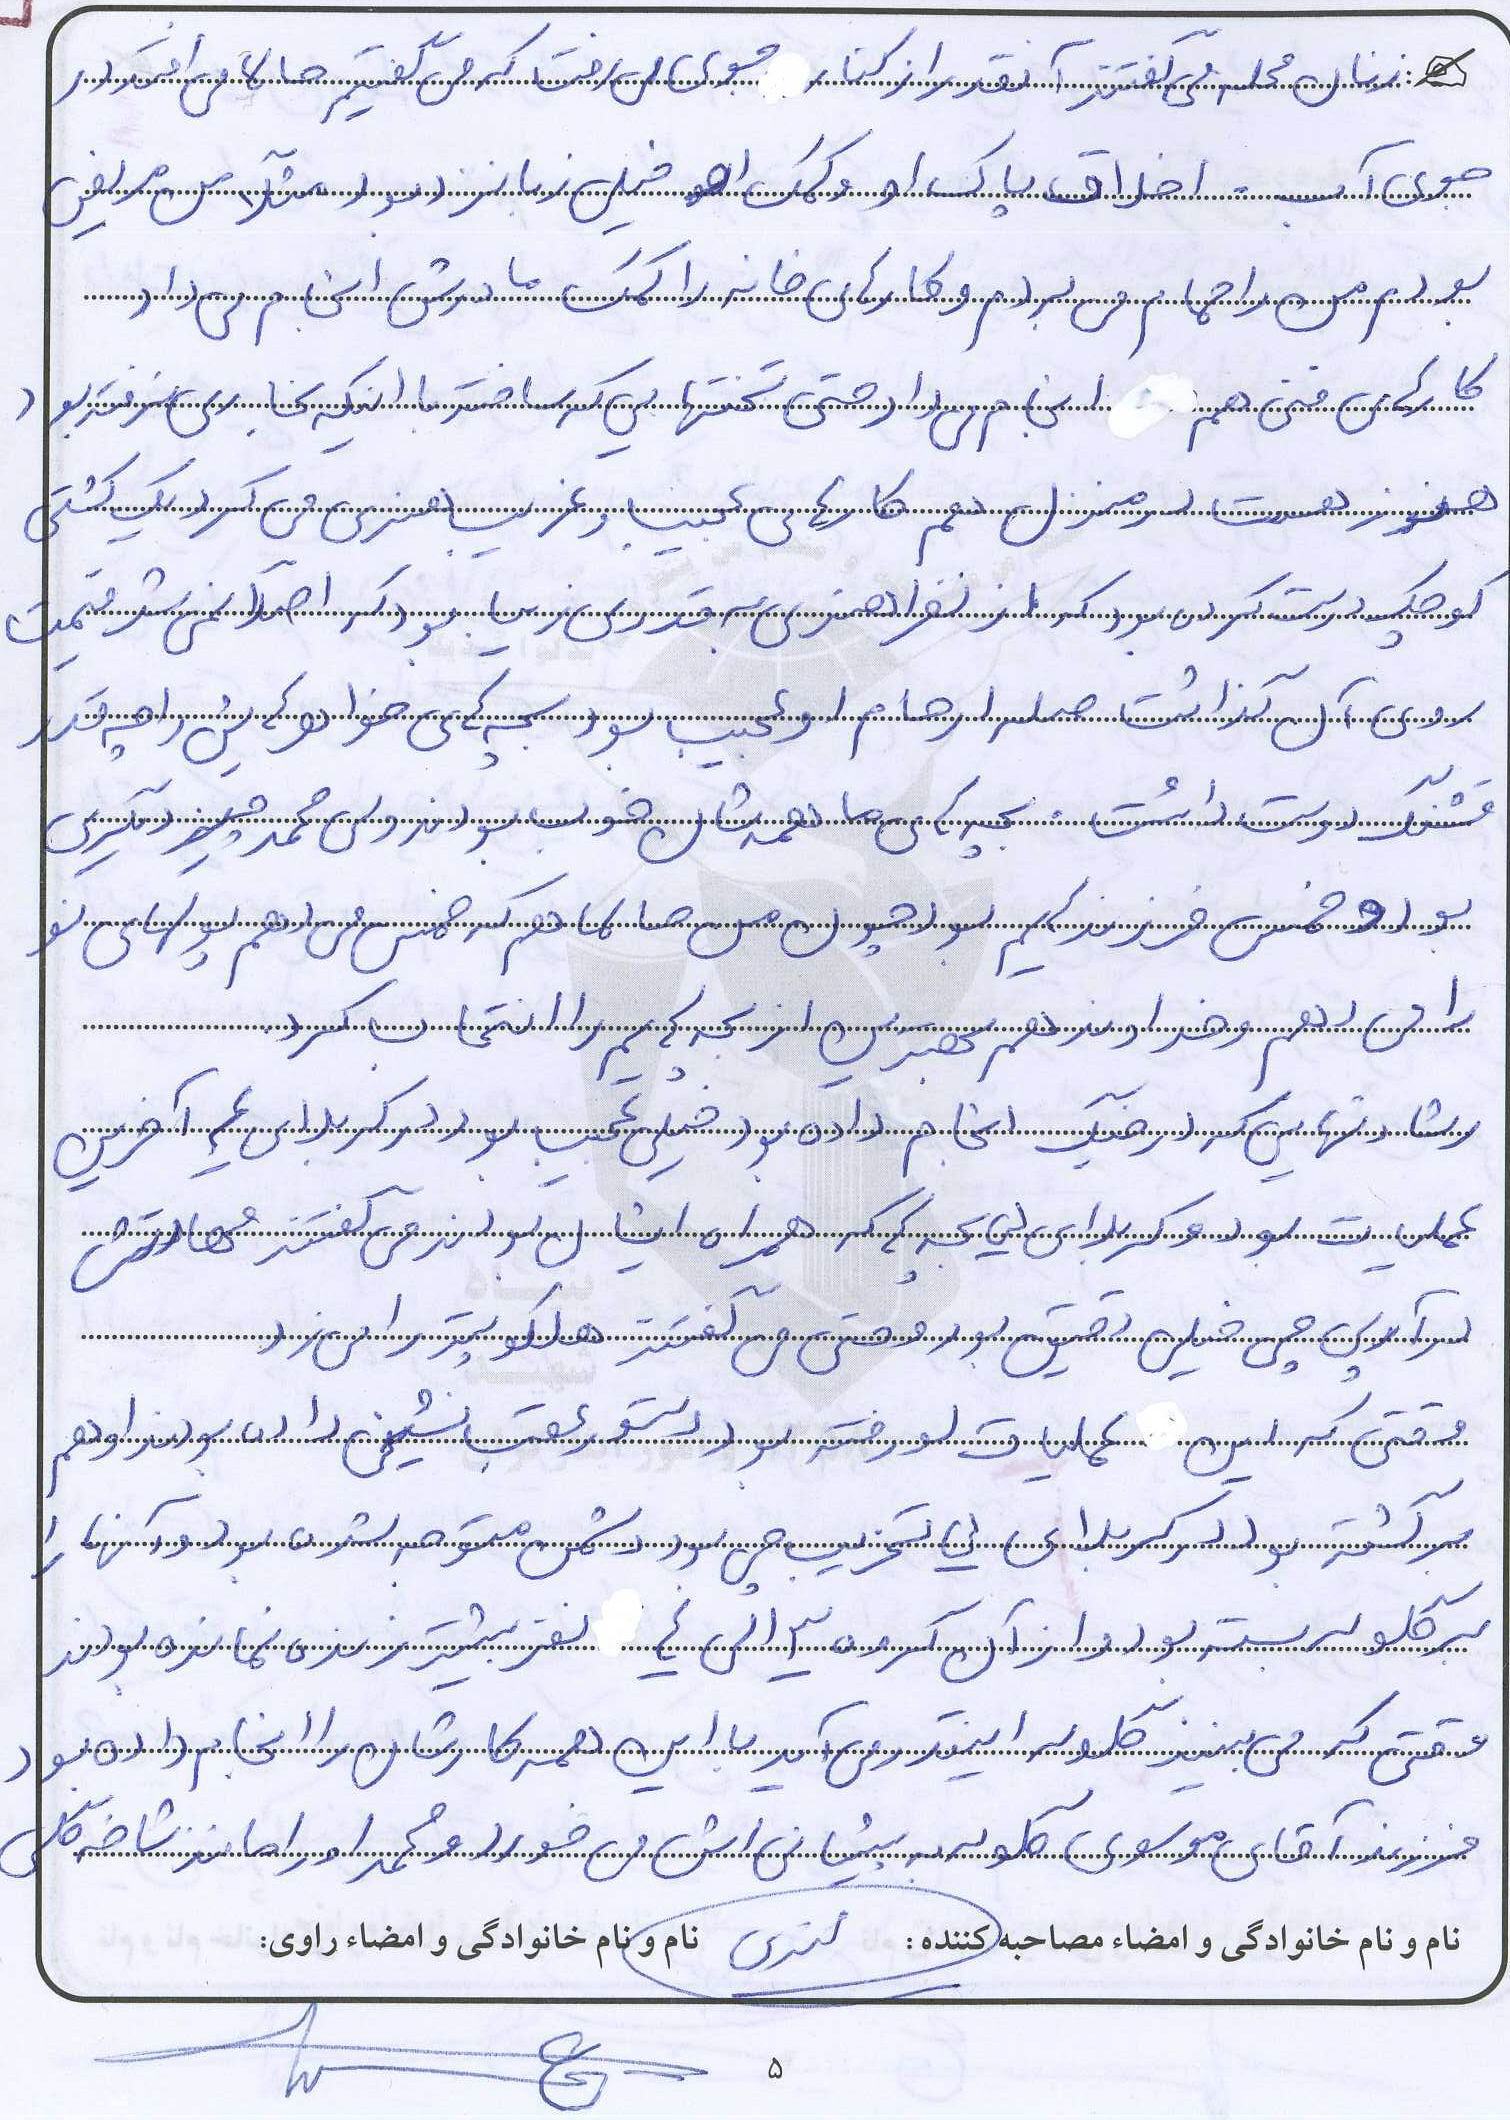 زنان محله می گفتند آنقدر از کنار جوی می رفت که می گفتیم حالا می افتد در
جوی آب - اخلاق پاک او و کمک او خیلی زبانزد بود مثلا من مریض
بودم من را حمام می بردم و کارهای خانه را کمک مادرش انجام می داد
کارهای فنی هم انجام می داد حتی تختهایی که ساخته با اینکه نجاری نرفته بود
هنوز هست در منزل هم کارهای عجیب و غریب هنری می کرد یک کشتی
کوچک درست کرده بود که از نظر هنری به قدری زیبا بود که اصلا نمی شد قیمت
روی آن گذاشت صله ارحام او عجیب بود بچه های خواهرهایش را چه قدر
قشنگ دوست داشت . بچه های ما همه شان خوب بودند ولی محمد چیز دیگری
بود و خمس فرزندهایم بود چون من حسابها هم که خمس می دهم پولهای نو
را می دهم و خداوند هم بهترین از بچه هایم را انتخاب کرد
رشادتهایی که در جنگ انجام داده بود خیلی عجیب بود در کربلای ۴ آخرین
عملیات بود و کربلای ۴ بچه هایی که همراه ایشان بودند می گفتند مهارتش
در آرپی چی خیلی دقیق بود و حتی می گفتند هلکوپتر را می زد
وقتی که این عملیات لو رفته بود دستور عقب نشینی داده بودند او هم
برگشته بود در کربلای ۴ تخریب چی بود دشمن متوجه شده بود و آنها را
به گلوله بسته بود و از آن گروه ۳ الی ۴ نفر بیشتر زنده نمانده بودند
وقتی که می بینند گلوله اینقدر می آید با این همه کارشان را انجام داده بود
فرزند آقای موسوی گلوله به پیشانی اش می خورد و محمد او را مانند شاخه گلی
نام و نام خانوادگی و امضاء مصاحبه کننده: نام و نام خانوادگی و امضاء راوی:
۵